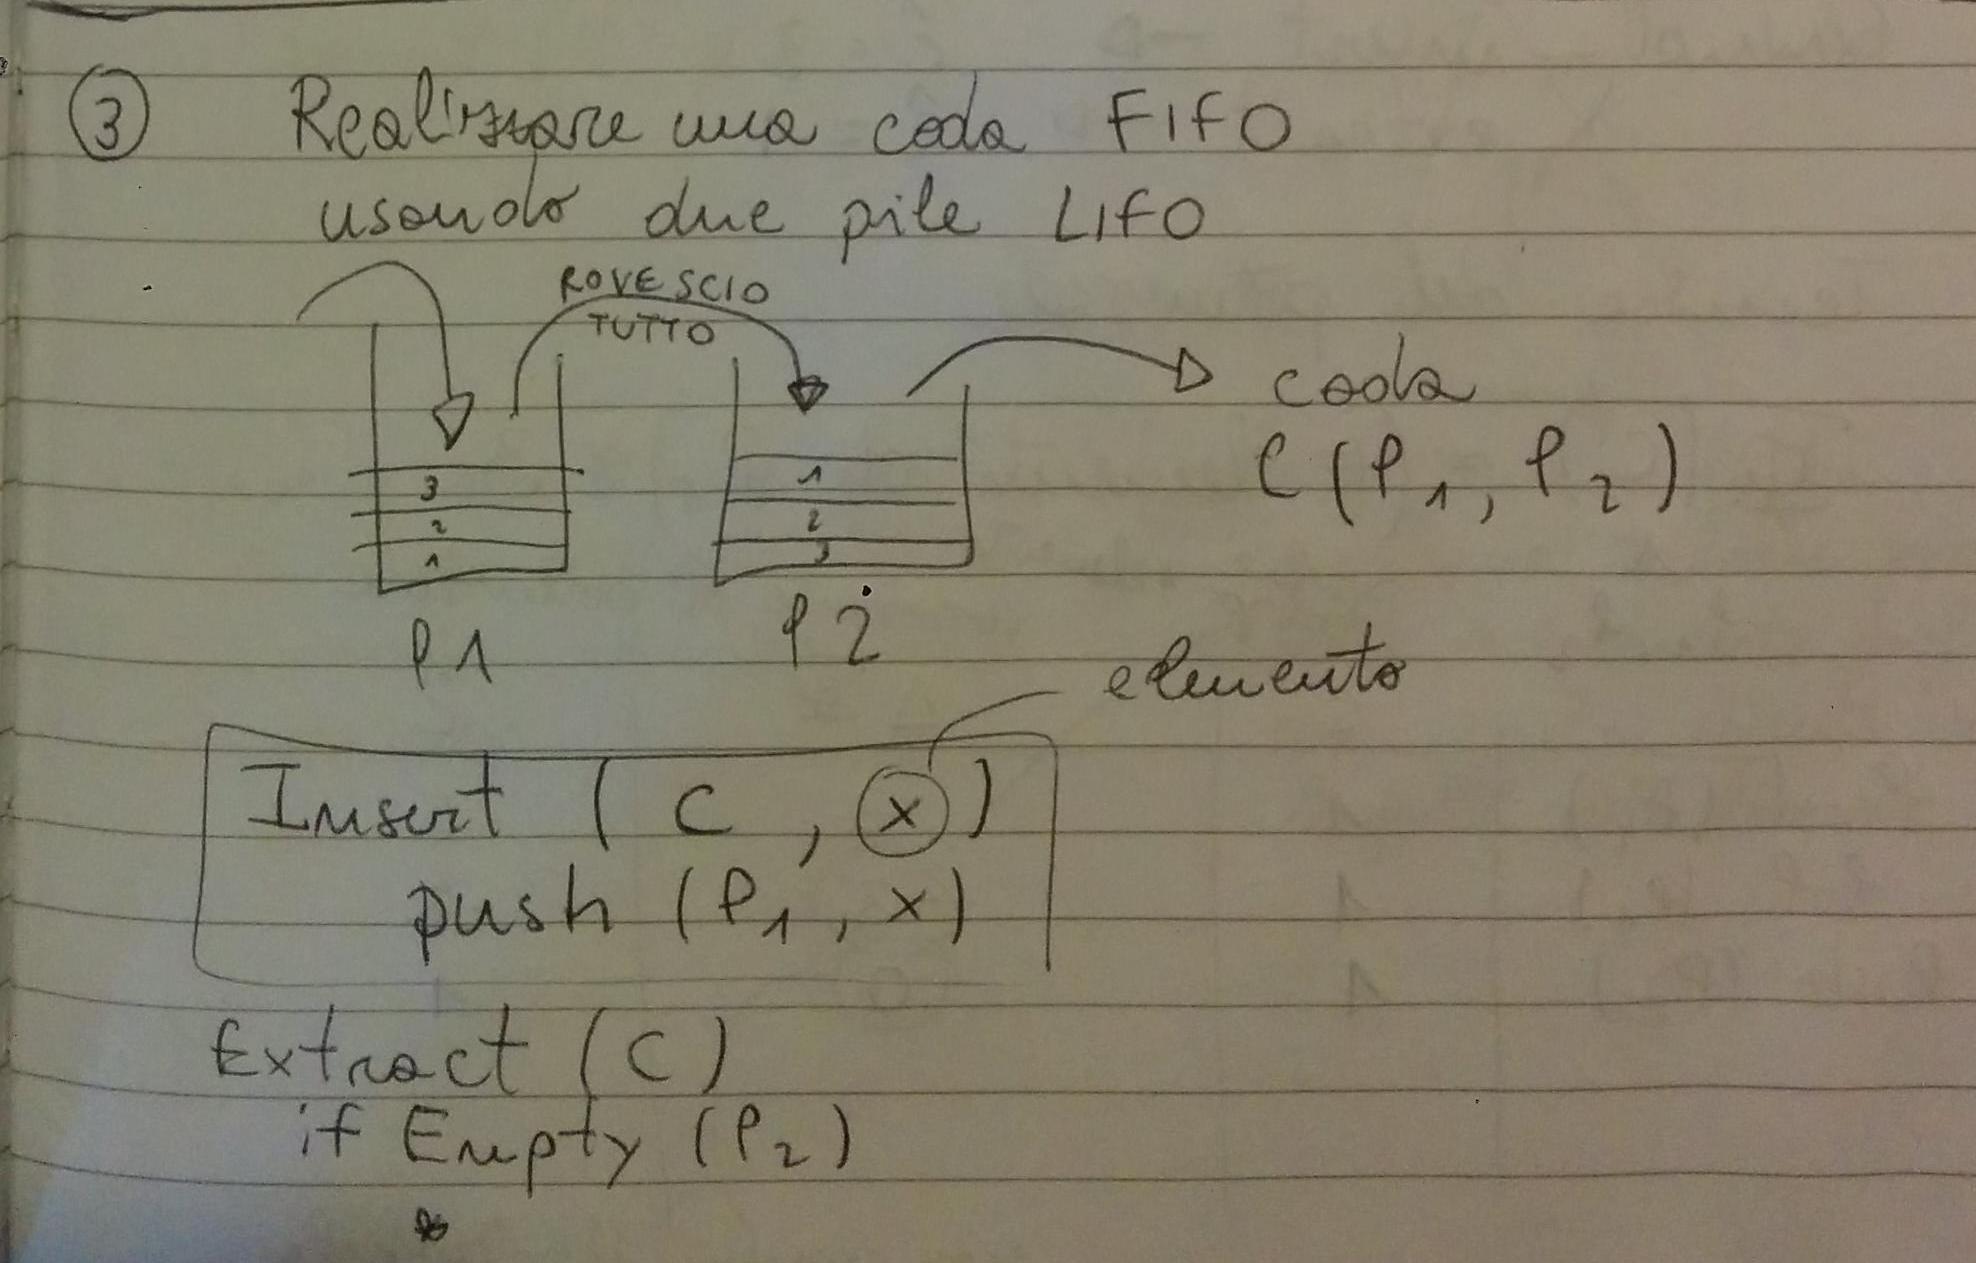 3 Realizzare una coda FIFO
usando due pile LIFO
ROVESCIO
TUTTO
coda
C (P1, P2)
3
2
1
1
2
3
P1
P2
elemento
Insert ( C , x )
push (P1, x)
Extract (C)
if Empty (P2)